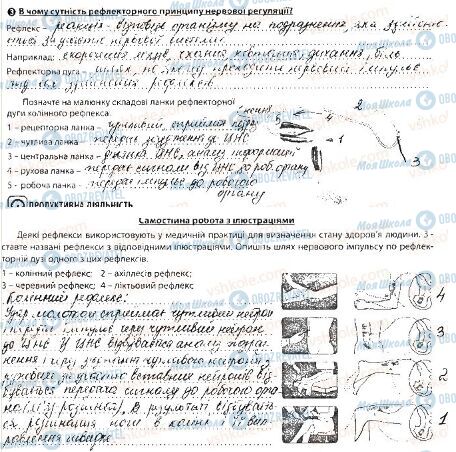 В чому сутність рефлекторного принципу нервової регуляції?
Рефлекс – реакція - відповідь організму на подразнення, яка здійснюється
за участю нервової системи.
Наприклад: скорочення м'язів, ковтання, дихання, біль
Рефлекторна дуга – шлях, по якому проходить нервовий імпульс
під час здійснення рефлексів.
Позначте на малюнку складові ланки рефлекторної
дуги колінного рефлекса.
1 – рецепторна ланка –
2 – чутлива ланка – до ЦНС
3 – центральна ланка – ділянка ЦНС, аналіз інформації
4 – рухова ланка – передає сигнали від ЦНС до роб. органу
5 – робоча ланка – передає імпульс до робочого
органу
5 4 2
1
3
ПРОДУКТИВНА ДІЯЛЬНІСТЬ
Самостійна робота з ілюстраціями
Деякі рефлекси використовують у медичній практиці для визначення стану здоров'я людини. З-
ставте названі рефлекси з відповідними ілюстраціями. Опишіть шлях нервового імпульсу по рефлек-
торній дузі одного з цих рефлексів.
1 – колінний рефлекс; 2 – ахіллесів рефлекс;
3 – черевний рефлекс; 4 – ліктьовий рефлекс
Колінний рефлекс:
Удар молотком сприймає чутливий нейрон
і передає імпульс через чутливий нейрон
до ЦНС. У ЦНС відбувається аналіз подраз-
нення і через чутливого нейрона,
за участю вставних нейронів від-
бувається передача сигналу до робочого орга-
ну. В результаті відбуваєть-
ся розгинання ноги в коліні
4
3
2
1